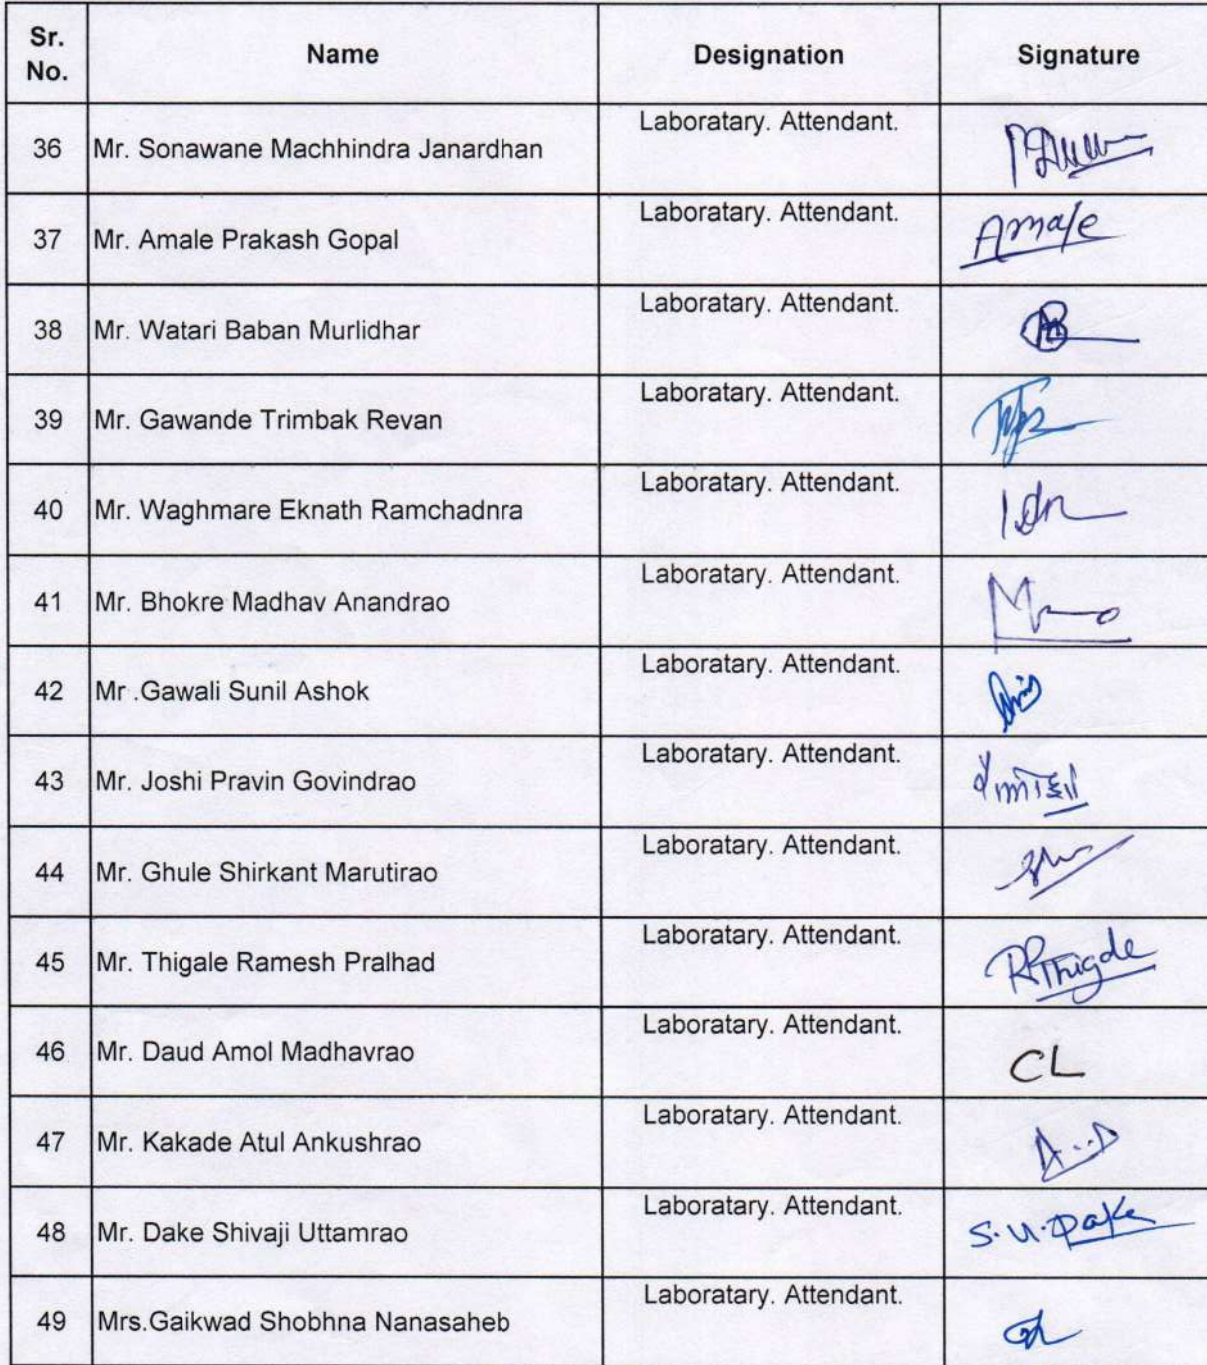 Sr. No. Name Designation Signature
36 Mr. Sonawane Machhindra Janardhan Laboratary. Attendant.
37 Mr. Amale Prakash Gopal Laboratary. Attendant. Amale
38 Mr. Watari Baban Murlidhar Laboratary. Attendant.
39 Mr. Gawande Trimbak Revan Laboratary. Attendant.
40 Mr. Waghmare Eknath Ramchadnra Laboratary. Attendant.
41 Mr. Bhokre Madhav Anandrao Laboratary. Attendant.
42 Mr .Gawali Sunil Ashok Laboratary. Attendant.
43 Mr. Joshi Pravin Govindrao Laboratary. Attendant.
44 Mr. Ghule Shirkant Marutirao Laboratary. Attendant.
45 Mr. Thigale Ramesh Pralhad Laboratary. Attendant.
46 Mr. Daud Amol Madhavrao Laboratary. Attendant. CL
47 Mr. Kakade Atul Ankushrao Laboratary. Attendant.
48 Mr. Dake Shivaji Uttamrao Laboratary. Attendant. S.U.Dake
49 Mrs.Gaikwad Shobhna Nanasaheb Laboratary. Attendant.